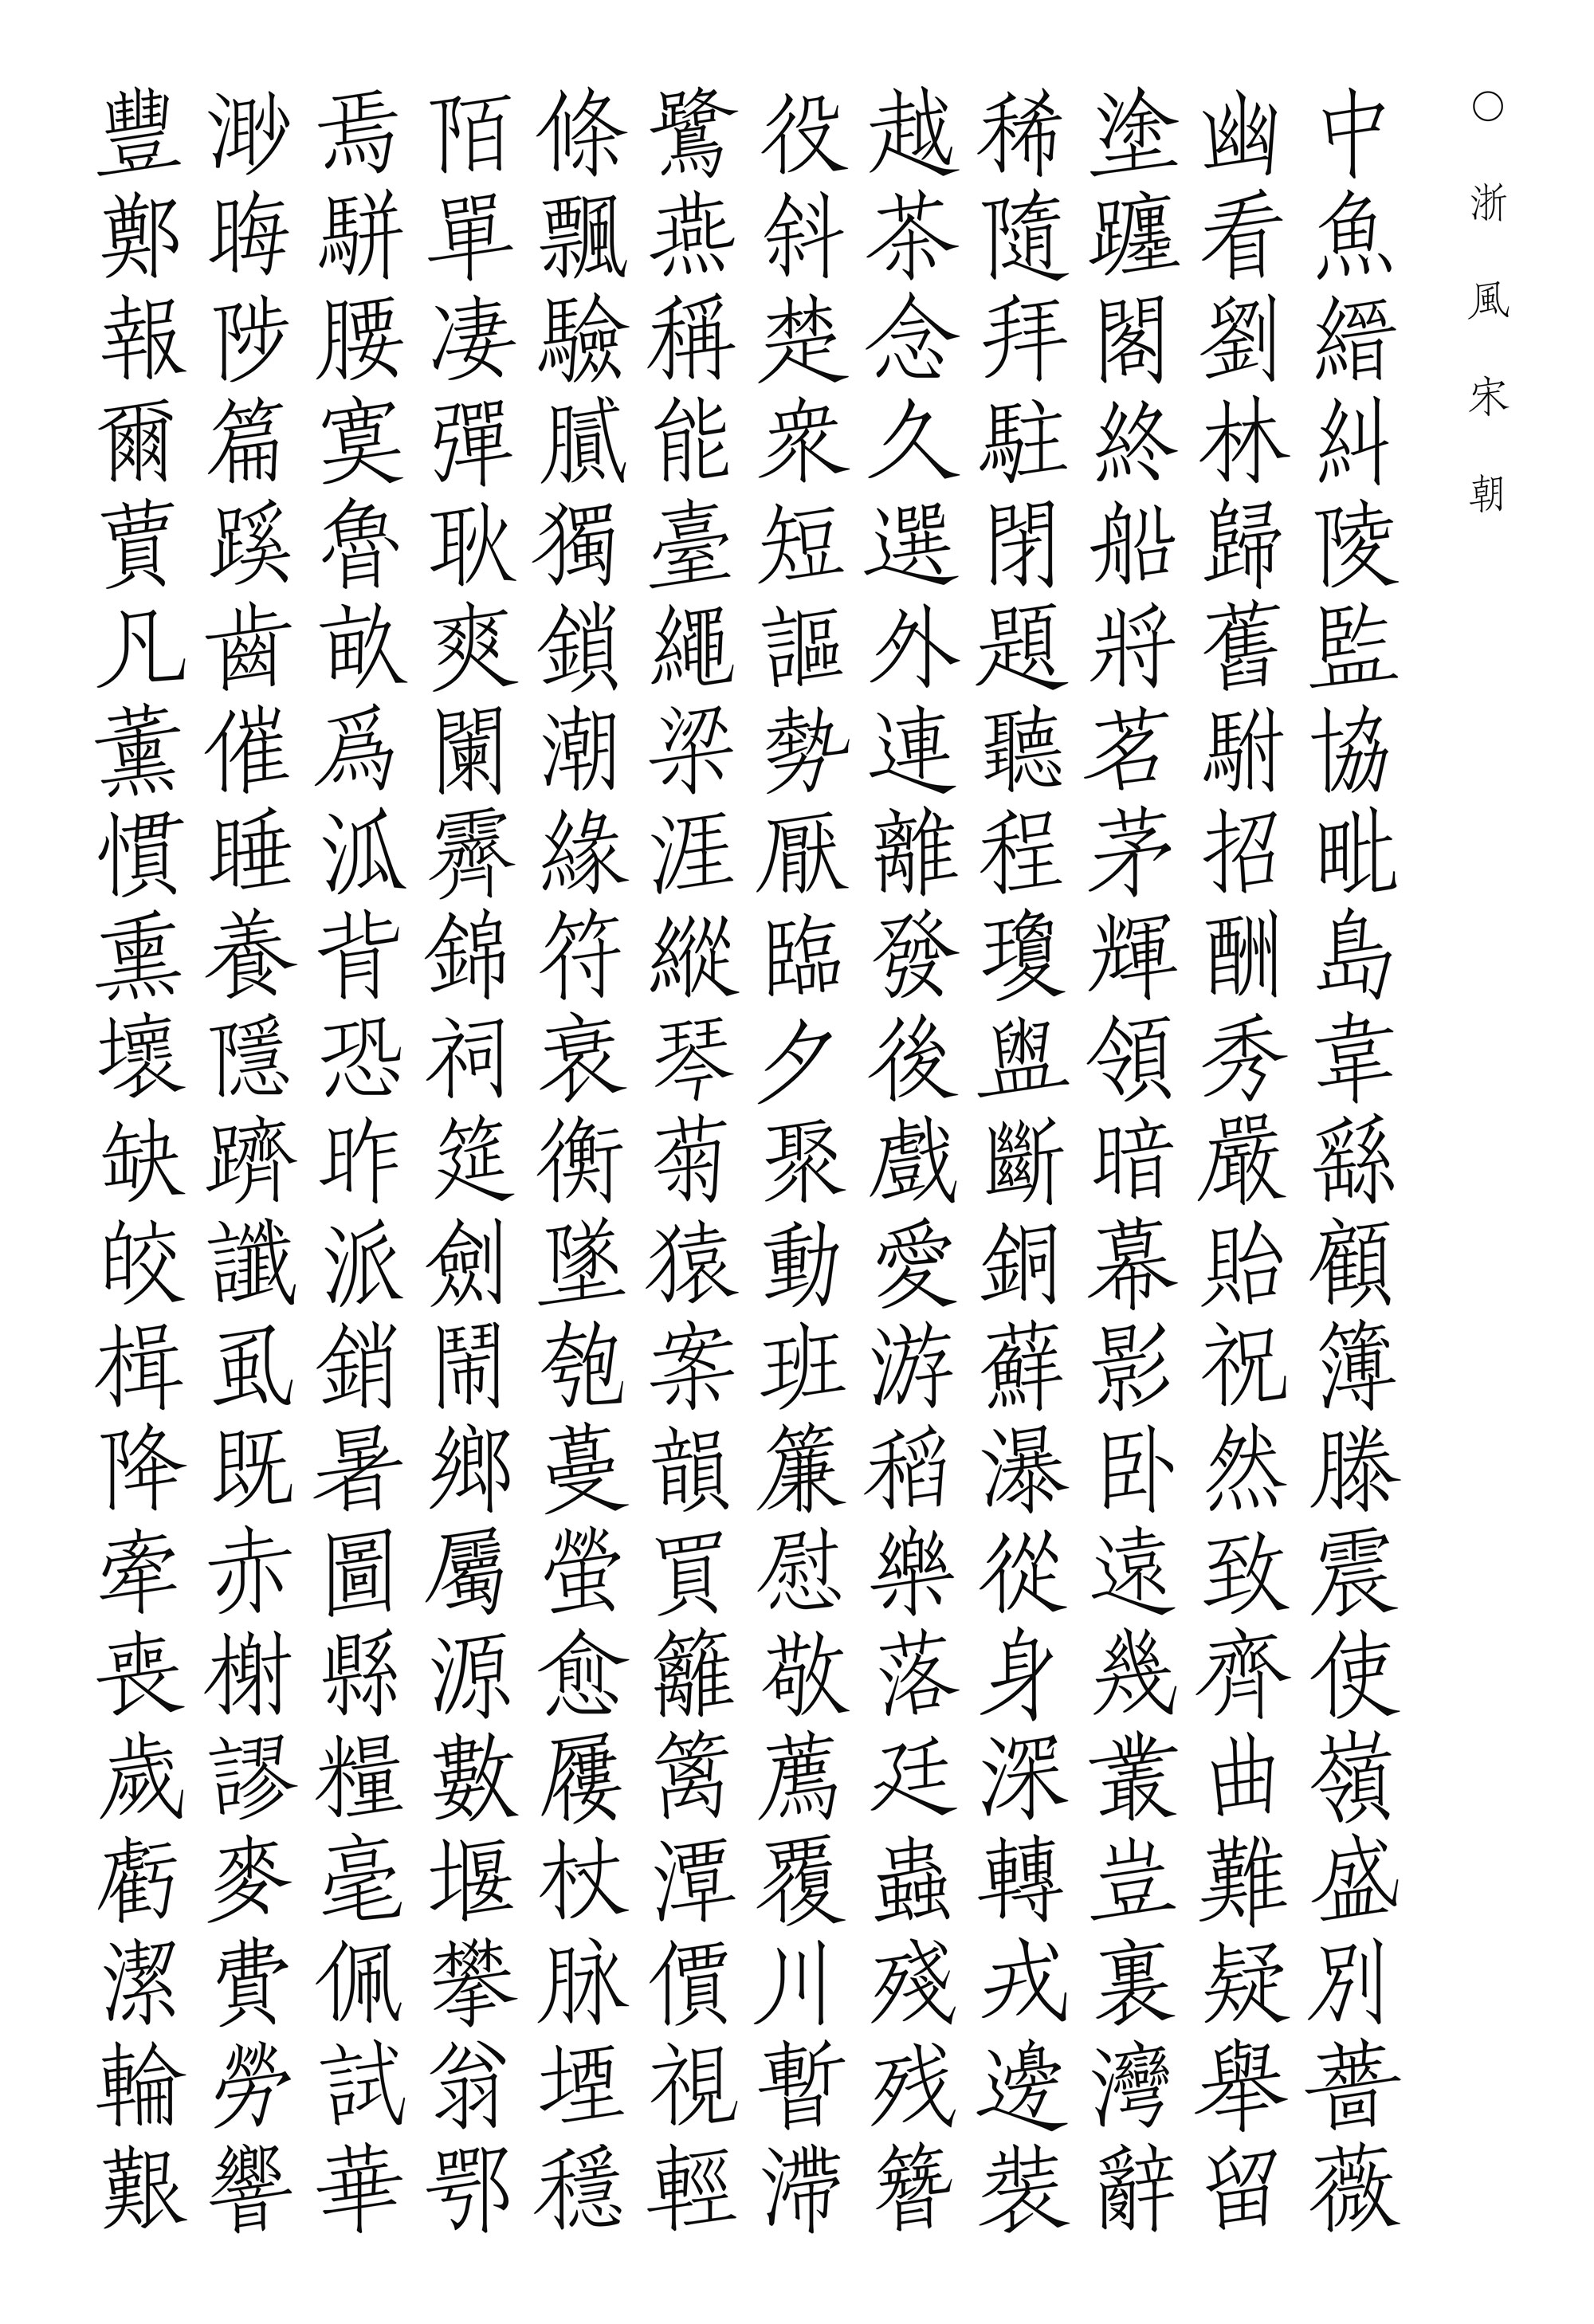 ○浙風宋朝
中魚縉糾陵監協毗島韋繇顧簿滕震使嶺盛別薔薇
幽看劉林歸舊駙招酬秀嚴貽祝然致齊曲難疑舉留
塗躔閣終船將茗茅輝領暗幕影卧遠幾叢豈裏灣辭
稀隨拜駐閉題聽程瓊盥斷銅蘇瀑從身深轉戎邊裝
越茶念久選外連離發後戲愛游稻樂落廷蟲殘残簪
役斜楚衆短謳勢厭臨夕聚動班簾慰敬薦覆川暫滯
鷺燕稱能臺繩梁涯縱琴菊猿案韻買籬篱潭價視輕
條飄驗膩獨鎖潮緣符衰衡墜匏蔓螢愈屨杖脉堙穩
陌單凄彈耿爽闌霽錦祠筵劍鬧鄉屬源數堰攀翁鄂
焉駢腰寞魯畝爲泒背恐昨派銷暑圖縣糧毫佩試華
渺晦陟篇蹊齒催睡養隱躋讖虱既赤榭謬麥費勞響
豐鄭報爾蕒凡薰慣熏壞缺皎楫降牽喪歲虧潔輪艱